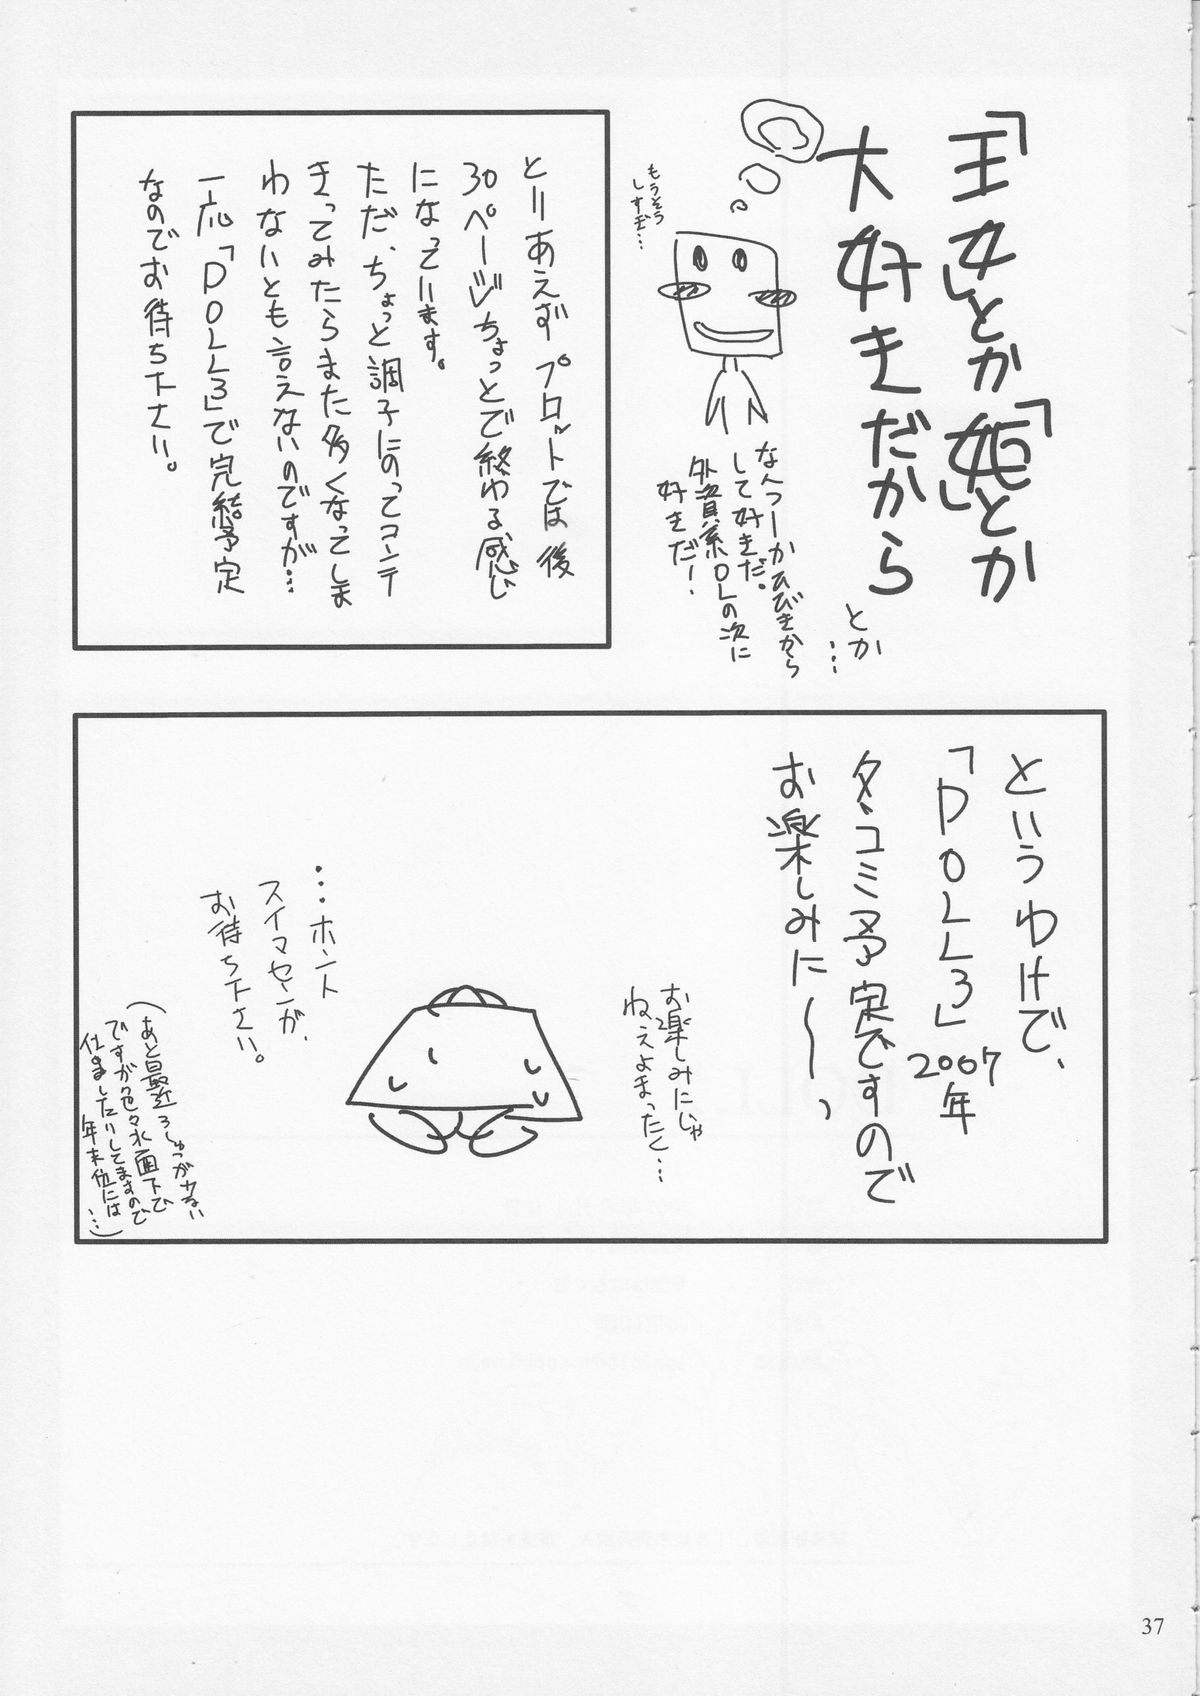 「王女」とか「姫」とか
大好きだから
とか
…
もうそう
しすぎ…
なんつーかひびきから
して好きだ。
外資系OLの次に
好きだ!
とりあえずプロットでは後
30ページちょっとで終わる感じ
になっています。
ただ、ちょっと調子にのってコンテ
きってみたらまた多くなってしま
わないとも言えないのですが…
一応「DOLL3」で完結予定
なのでお待ち下さい。
というわけで、
「DOLL3」2007年
冬コミ予定ですので
お楽しみに〜っ
お楽しみにじゃ
ねえよまったく…
…ホント
スイマセンが、
お待ち下さい。
(あと最近ろしゅつが少ない
ですが色々水面下で
仕こましたりしてますので
年末位には
…)
37